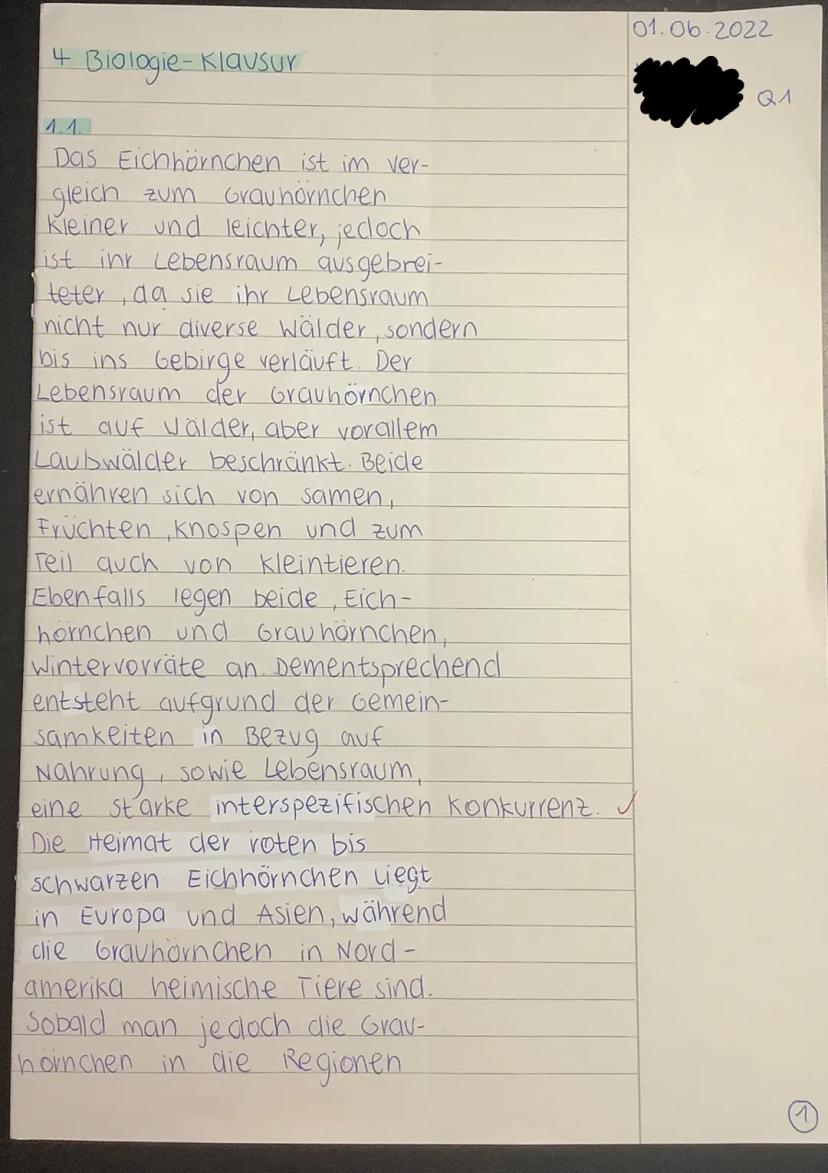 01.06.2022
4 Biologie-Klausur
Q1
1.1.
Das Eichhörnchen ist im ver-
gleich zum Grauhörnchen
kleiner und leichter, jedoch
ist ihr Lebensraum ausgebrei-
teter, da sie ihr Lebensraum
nicht nur diverse Wälder, sondern
bis ins Gebirge verläuft. Der
Lebensraum der Grauhörnchen
ist auf Wälder, aber vorallem
Laubwälder beschränkt. Beide
ernähren sich von samen,
Früchten, Knospen und zum
Teil auch von Kleintieren.
Ebenfalls legen beide, Eich-
hörnchen und Grauhörnchen,
Wintervorräte an. Dementsprechend
entsteht aufgrund der Gemein-
samkeiten in Bezug auf
Nahrung, sowie Lebensraum,
eine starke interspezifischen Konkurrenz. ✓
Die Heimat der roten bis
schwarzen Eichhörnchen liegt
in Europa und Asien, während
die Grauhörnchen in Nord-
amerika heimische Tiere sind.
Sobald man jedoch die Grau-
hörnchen in die Regionen
1